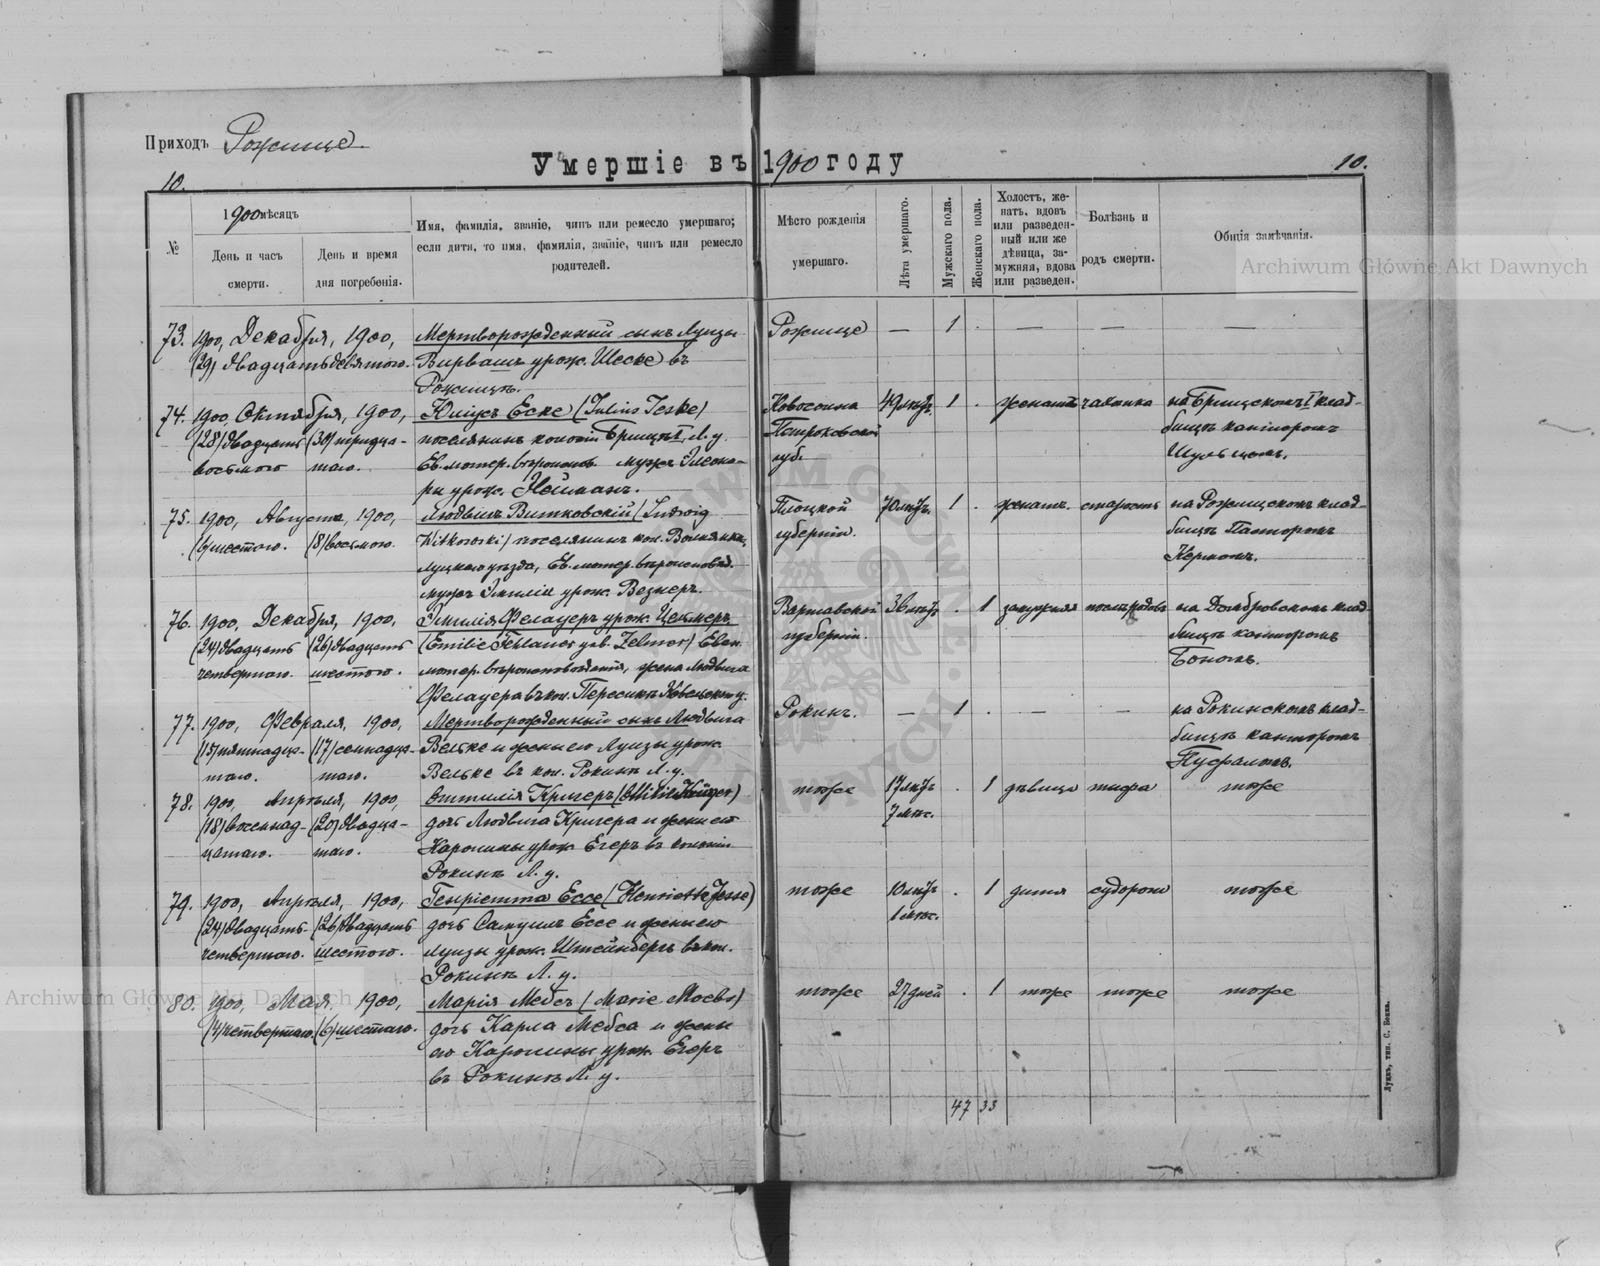 Приходъ Рожище.
Умершіе въ 1900 году
10.
10.
№
1900 мѣсяцъ
День и часъ
смерти.
День и время
дня погребенія.
Имя, фамилія, званіе, чинъ или ремесло умершаго;
если дитя, то имя, фамилія, званіе, чинъ или ремесло
родителей.
Мѣсто рожденія
умершаго.
Лѣта умершаго.
Мужскаго пола.
Женскаго пола.
Холостъ, же-
натъ, вдовъ
или разведен-
ный или же
дѣвица, за-
мужняя, вдова
или разведен.
Болѣзнь и
родъ смерти.
Общія замѣчанія.
Archiwum Główne Akt Dawnych
73. 1900, Декабря, 1900, Мертворожденный сынъ Луизы Рожище — 1 . — — —
(29) двадцать девятого. Вирвашъ урож. Шеске въ
Рожищѣ.
74. 1900, Октября, 1900, Юліусъ Еске (Julius Jeske) 49 лѣтъ 1 . женатъ чахотка на Брищскомъ I клад-
(28) двадцать (30) тридца- поселянинъ колоніи Брищъ I, Л. у. Петроковской бищѣ канторомъ
восьмого таго. Ев. лютер. вѣроиспов. мужъ Элеоно- губ. Шульцомъ.
ры урож. Нейманъ.
75. 1900, Августа, 1900, Людвигъ Витковскій (Ludwig Плоцкой 70 лѣтъ. 1 . женатъ. старость на Рожищскомъ клад-
(6) шестого. (8) восьмого. Witkowski) поселянинъ кол. губерніи. бищѣ Пасторомъ
Луцкаго уѣзда, Ев. лютер. вѣроисповѣд. Кермомъ.
мужъ Эмиліи урож. Везнеръ.
76. 1900, Декабря, 1900, Эмилія Фелауеръ урож. Целмеръ Варшавской 36 лѣтъ . 1 замужняя на Домбровскомъ клад-
(24) двадцать (26) двадцать (Emilie Fehlauer geb. Zelmer) Еван. губерніи. бищѣ канторомъ
четвертаго. шестого. лютер. вѣроисповѣданія, жена Людвига
Фелауера въ кол. Ковельскаго у.
77. 1900, Февраля, 1900, Мертворожденный сынъ Людвига Рокинъ. — 1 . — — на Рокинскомъ клад-
(15) пятнадца- (17) семнадца- Вельке и жены его Луизы урож. бищѣ канторомъ
таго. таго. Вельке въ кол. Рокинъ Л. у.
78. 1900, Апрѣля, 1900, Оттилія Кригеръ (Ottilie Krüger) тоже 17 лѣтъ . 1 дѣвица тифа тоже
(18) восемнад- (20) двадца- дочь Людвига Кригера и жены его 7 мѣс.
цатаго. таго. Каролины урож. Егеръ въ колоніи
Рокинъ Л. у.
79. 1900, Апрѣля, 1900, Генріетта Ессе (Henriette Jesse) тоже 10 лѣтъ . 1 дитя судороги тоже
(24) двадцать (26) двадцать дочь Самуила Ессе и жены его 1 мѣс.
четвертаго. шестого. Луизы урож. Штейнбергъ въ кол.
Рокинъ Л. у.
Archiwum Główne Akt Dawnych
80. 1900, Мая, 1900, Марія Мебсъ (Marie Moebs) тоже 27 дней . 1 тоже тоже тоже
(4) четвертаго. (6) шестого. дочь Карла Мебса и жены
его Каролины урож. Егеръ
въ Рокинѣ Л. у.
47 33
Луцкъ, тип. С. Бокка.